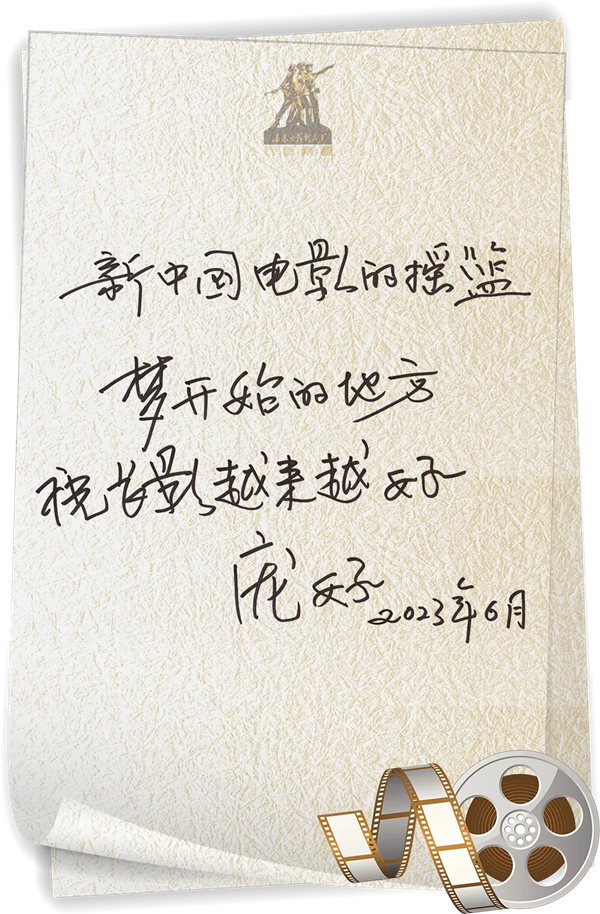 新中国电影的摇篮
梦开始的地方
祝长影越来越好
庞好
2023年6月